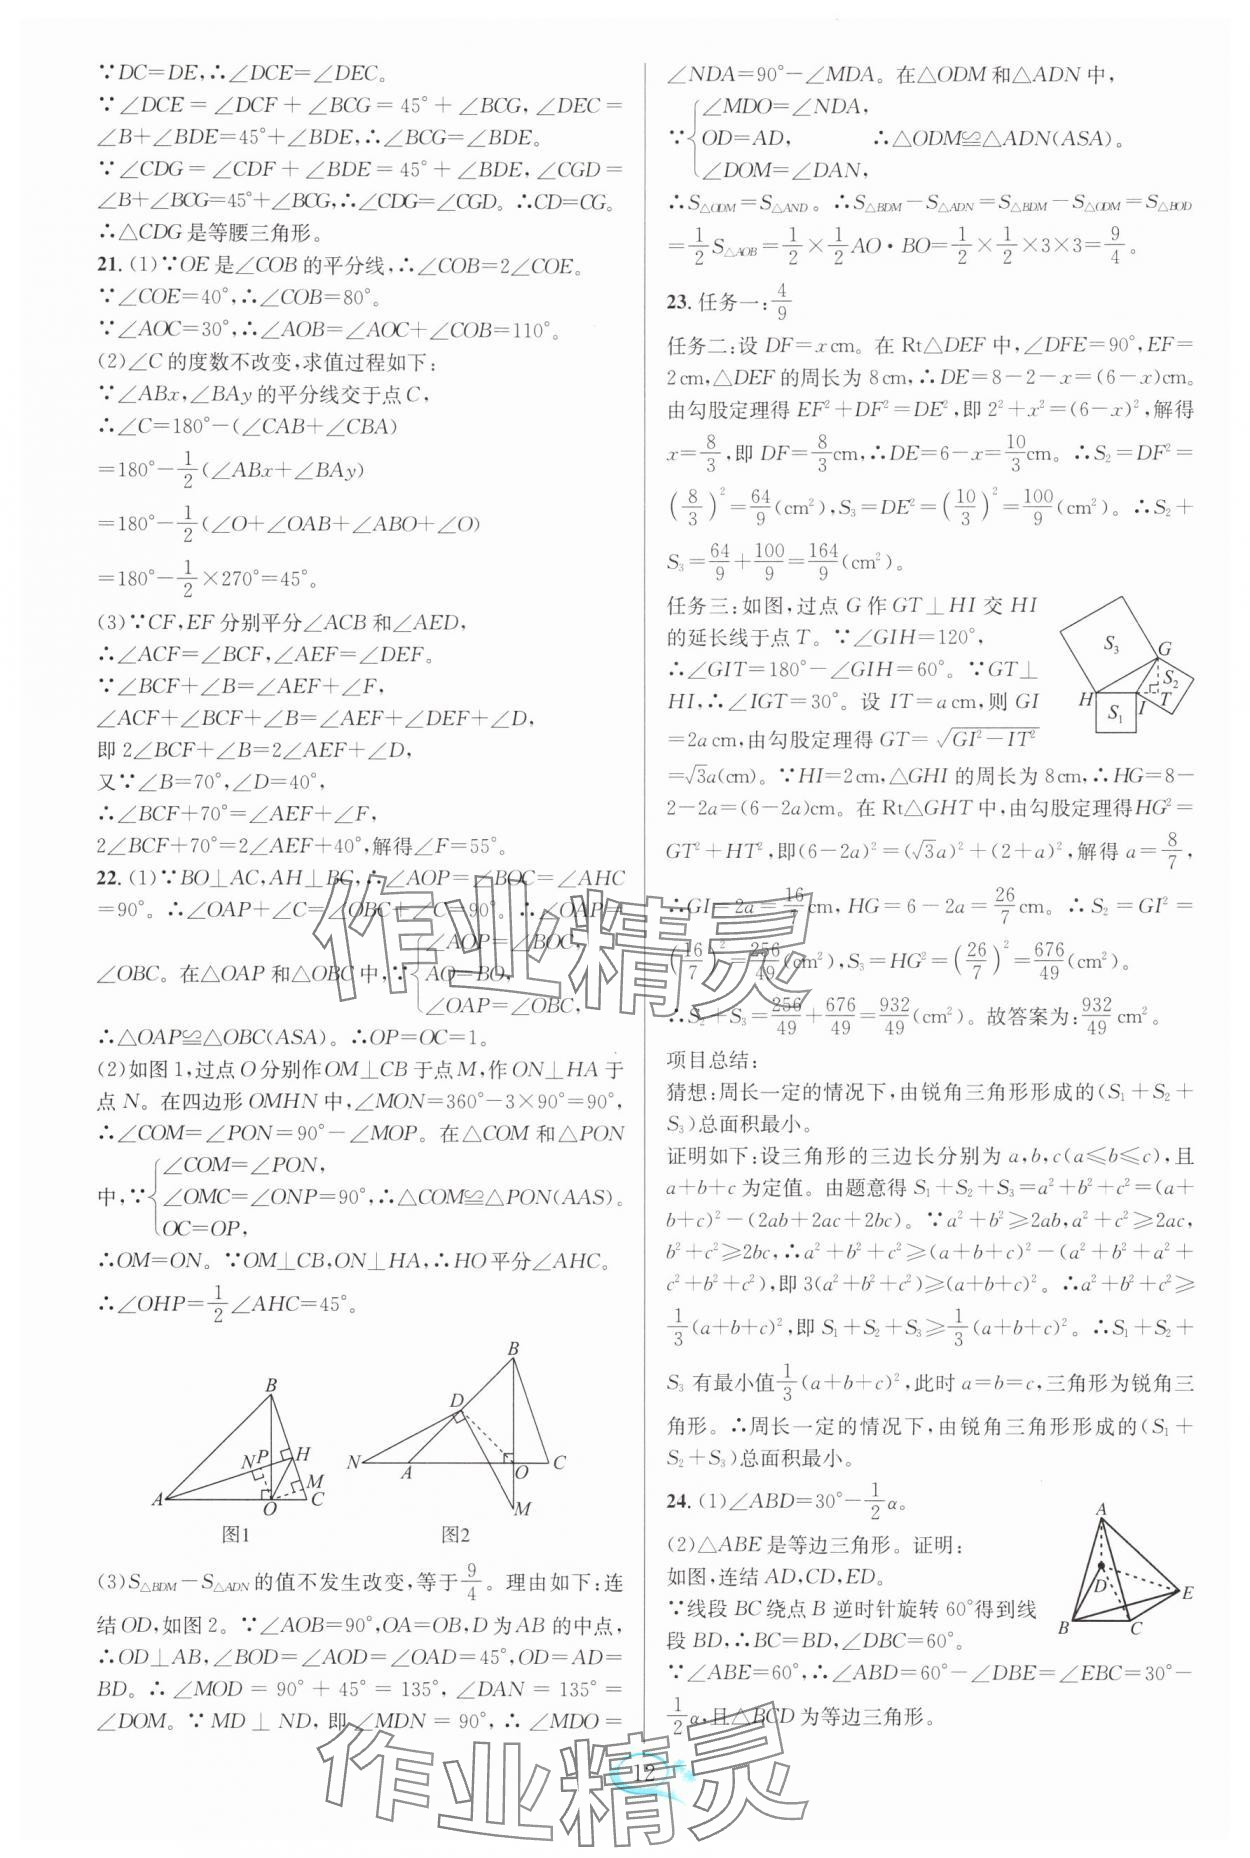 ∵DC=DE,∴∠DCE=∠DEC。
∵∠DCE=∠DCF+∠BCG=45°+∠BCG,∠DEC=
∠B+∠BDE=45°+∠BDE,∴∠BCG=∠BDE。
∵∠CDG=∠CDF+∠BDE=45°+∠BDE,∠CGD=
∠B+∠BCG=45°+∠BCG,∴∠CDG=∠CGD。∴CD=CG。
∴△CDG是等腰三角形。
21.(1)∵OE是∠COB的平分线,∴∠COB=2∠COE。
∵∠COE=40°,∴∠COB=80°。
∵∠AOC=30°,∴∠AOB=∠AOC+∠COB=110°。
(2)∠C的度数不改变,求值过程如下:
∵∠ABx,∠BAy的平分线交于点C,
∴∠C=180°-(∠CAB+∠CBA)
=180°-1/2(∠ABx+∠BAy)
=180°-1/2(∠O+∠OAB+∠ABO+∠O)
=180°-1/2×270°=45°。
(3)∵CF,EF分别平分∠ACB和∠AED,
∴∠ACF=∠BCF,∠AEF=∠DEF。
∵∠BCF+∠B=∠AEF+∠F,
∠ACF+∠BCF+∠B=∠AEF+∠DEF+∠D,
即2∠BCF+∠B=2∠AEF+∠D,
又∵∠B=70°,∠D=40°,
∴∠BCF+70°=∠AEF+∠F,
2∠BCF+70°=2∠AEF+40°,解得∠F=55°。
22.(1)∵BO⊥AC,AH⊥BC,∴∠AOP=∠BOC=∠AHC
=90°。∴∠OAP+∠C=∠OBC+∠C=90°。∴∠OAP=
∠OBC。在△OAP和△OBC中,∵{∠AOP=∠BOC,
AO=BO,
∠OAP=∠OBC,
∴△OAP≌△OBC(ASA)。∴OP=OC=1。
(2)如图1,过点O分别作OM⊥CB于点M,作ON⊥HA于
点N。在四边形OMHN中,∠MON=360°-3×90°=90°,
∴∠COM=∠PON=90°-∠MOP。在△COM和△PON
中,∵{∠COM=∠PON,
∠OMC=∠ONP=90°,∴△COM≌△PON(AAS)。
OC=OP,
∴OM=ON。∵OM⊥CB,ON⊥HA,∴HO平分∠AHC。
∴∠OHP=1/2∠AHC=45°。
B
N P H
M
A O C
图1
B
D
N A O C
M
图2
(3)S△BDM-S△ADN的值不发生改变,等于9/4。理由如下:连
结OD,如图2。∵∠AOB=90°,OA=OB,D为AB的中点,
∴OD⊥AB,∠BOD=∠AOD=∠OAD=45°,OD=AD=
BD。∴∠MOD=90°+45°=135°,∠DAN=135°=
∠DOM。∵MD⊥ND,即∠MDN=90°,∴∠MDO=
∠NDA=90°-∠MDA。在△ODM和△ADN中,
∵{∠MDO=∠NDA,
OD=AD, ∴△ODM≌△ADN(ASA)。
∠DOM=∠DAN,
∴S△ODM=S△AND。∴S△BDM-S△ADN=S△BDM-S△ODM=S△BOD
=1/2S△AOB=1/2×1/2AO·BO=1/2×1/2×3×3=9/4。
23.任务一:4/9
任务二:设DF=x cm。在Rt△DEF中,∠DFE=90°,EF=
2cm,△DEF的周长为8cm,∴DE=8-2-x=(6-x)cm。
由勾股定理得EF²+DF²=DE²,即2²+x²=(6-x)²,解得
x=8/3,即DF=8/3cm,∴DE=6-x=10/3cm。∴S₂=DF²=
(8/3)²=64/9(cm²),S₃=DE²=(10/3)²=100/9(cm²)。∴S₂+
S₃=64/9+100/9=164/9(cm²)。
任务三:如图,过点G作GT⊥HI交HI
的延长线于点T。∵∠GIH=120°,
∴∠GIT=180°-∠GIH=60°。∵GT⊥
HI,∴∠IGT=30°。设IT=a cm,则GI
=2a cm,由勾股定理得GT=√(GI²-IT²)
=√3a(cm)。∵HI=2cm,△GHI的周长为8cm,∴HG=8-
2-2a=(6-2a)cm。在Rt△GHT中,由勾股定理得HG²=
GT²+HT²,即(6-2a)²=(√3a)²+(2+a)²,解得a=8/7,
∴GI=2a=16/7cm,HG=6-2a=26/7cm。∴S₂=GI²=
(16/7)²=256/49(cm²),S₃=HG²=(26/7)²=676/49(cm²)。
∴S₂+S₃=256/49+676/49=932/49(cm²)。故答案为:932/49cm²。
S₃ G
S₂
H T
S₁ I
项目总结:
猜想:周长一定的情况下,由锐角三角形形成的(S₁+S₂+
S₃)总面积最小。
证明如下:设三角形的三边长分别为a,b,c(a≤b≤c),且
a+b+c为定值。由题意得S₁+S₂+S₃=a²+b²+c²=(a+
b+c)²-(2ab+2ac+2bc)。∵a²+b²≥2ab,a²+c²≥2ac,
b²+c²≥2bc,∴a²+b²+c²≥(a+b+c)²-(a²+b²+a²+
c²+b²+c²),即3(a²+b²+c²)≥(a+b+c)²。∴a²+b²+c²≥
1/3(a+b+c)²,即S₁+S₂+S₃≥1/3(a+b+c)²。∴S₁+S₂+
S₃有最小值1/3(a+b+c)²,此时a=b=c,三角形为锐角三
角形。∴周长一定的情况下,由锐角三角形形成的(S₁+
S₂+S₃)总面积最小。
24.(1)∠ABD=30°-1/2α。
(2)△ABE是等边三角形。证明:
如图,连结AD,CD,ED。
∵线段BC绕点B逆时针旋转60°得到线
段BD,∴BC=BD,∠DBC=60°。
∵∠ABE=60°,∴∠ABD=60°-∠DBE=∠EBC=30°-
1/2α,且△BCD为等边三角形。
A
D E
B C
作业精灵
作业精灵
12